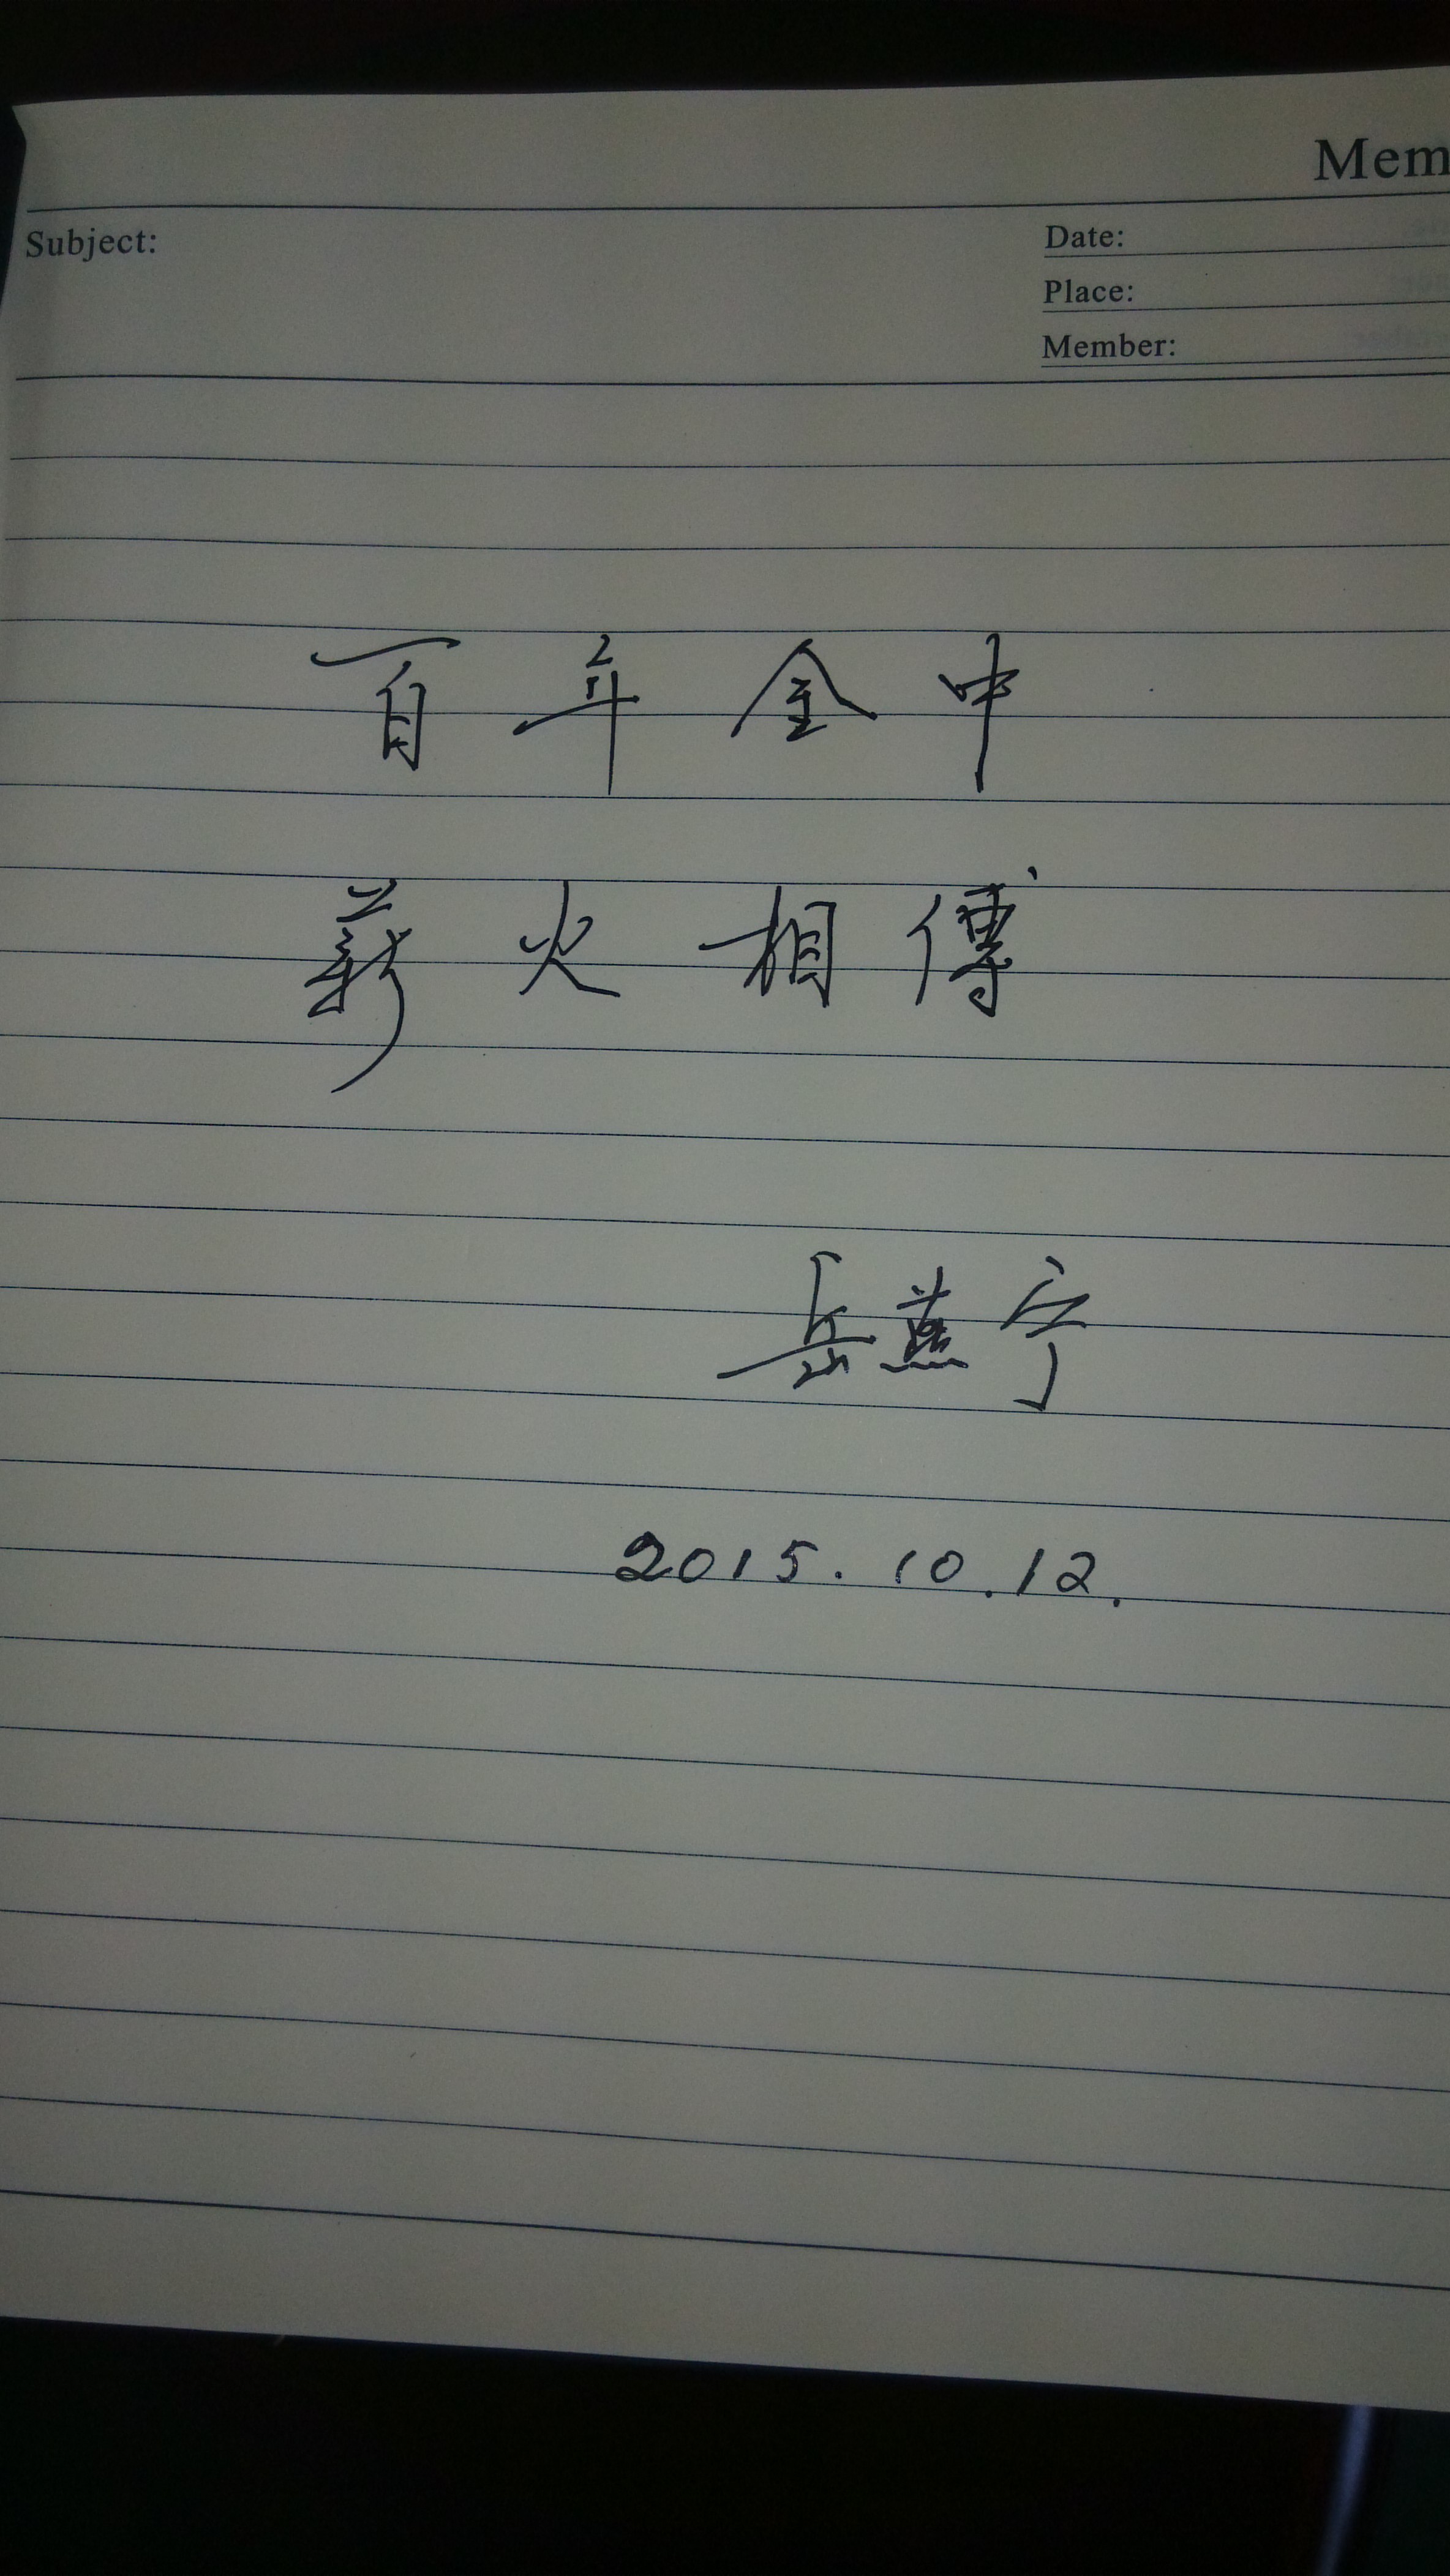 Mem
Subject:
Date:
Place:
Member:
百年金中
薪火相傳
岳燕宁
2015.10.12.